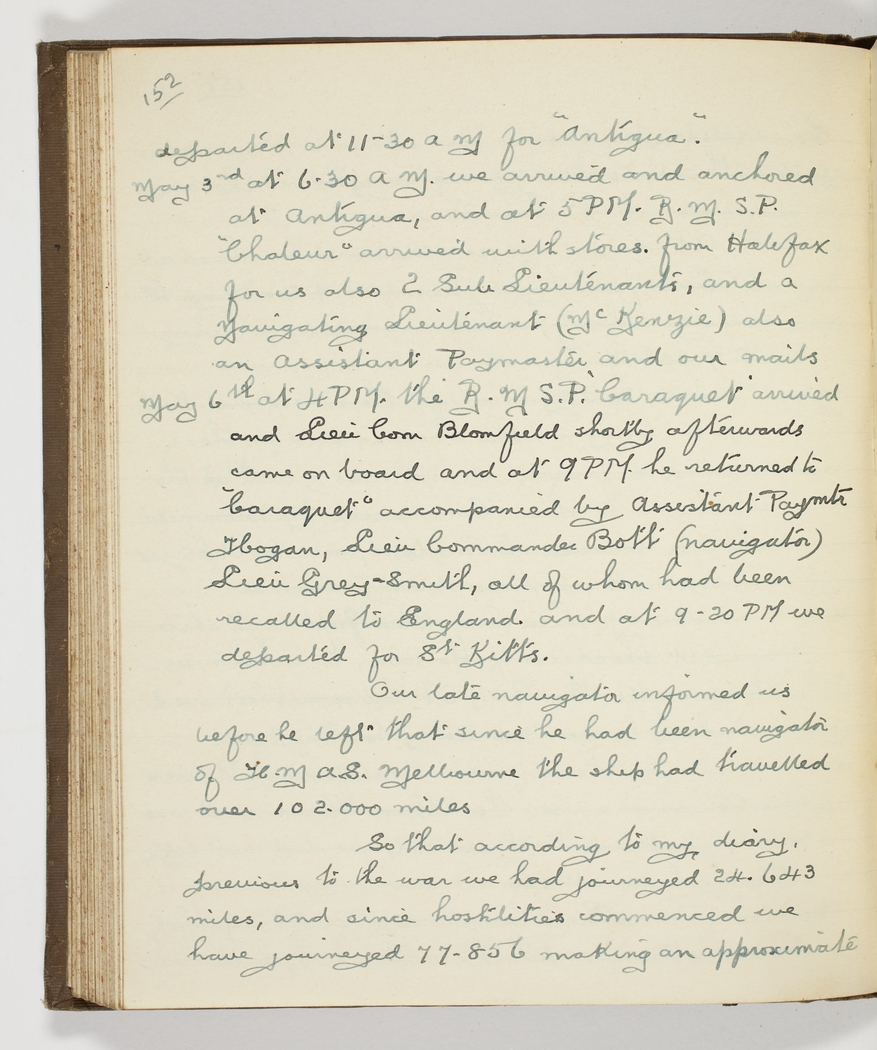 152
departed at 11-30 a M for "Antigua".
May 3rd at 6-30 A M. we arrived and anchored
at Antigua, and at 5 PM. R. M. S. P.
"Chaleur" arrived with stores. from Halifax
for us also 2 Sub Lieutenants, and a
Navigating Lieutenant (Mc Kenzie) also
an Assistant Paymaster and our mails
May 6th at 4 PM. the R. M S. P. "Caraquet" arrived
and Lieu Com Blomfield shortly afterwards
came on board and at 9 PM. he returned to
"Caraquet" accompanied by Assistant Paymtr
Hogan, Lieu Commander Bott (navigator)
Lieu Grey-Smith, all of whom had been
recalled to England. and at 9-20 PM we
departed for St Kitts.
Our late navigator informed us
before he left that since he had been navigator
of H. M A. S. Melbourne the ship had travelled
over 102.000 miles
So that according to my diary.
previous to the war we had journeyed 24.643
miles, and since hostilities commenced we
have journeyed 77-856 making an approximate